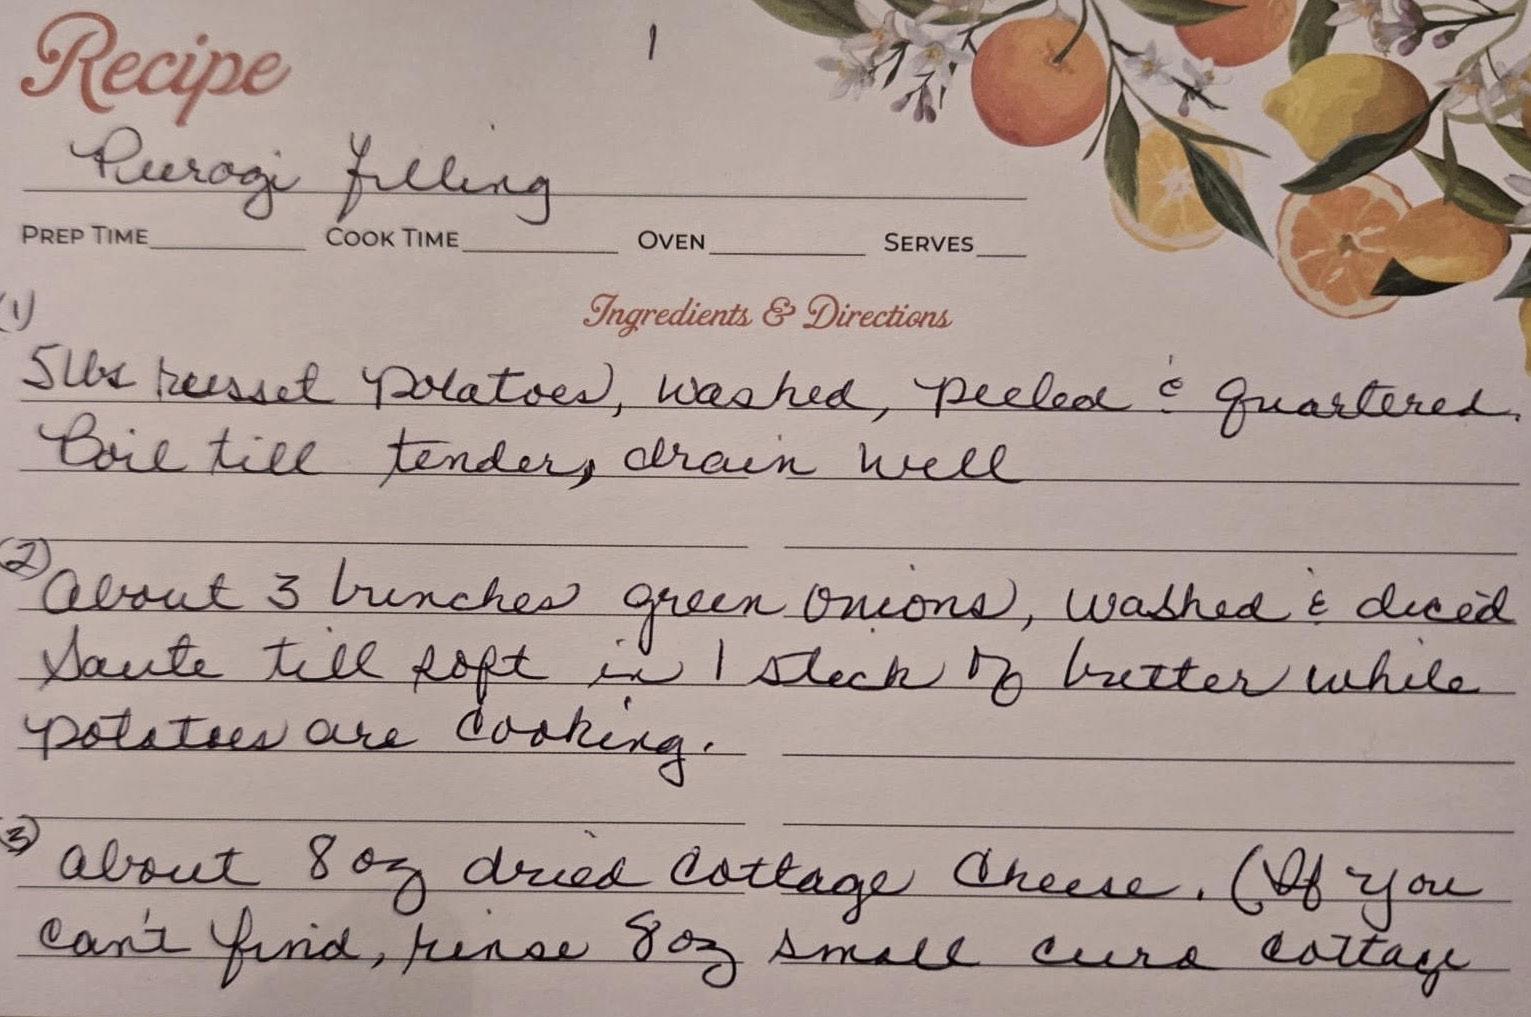 Recipe
1
Pierogi filling
PREP TIME COOK TIME OVEN SERVES
Ingredients & Directions
(1)
5 lbs russet potatoes, washed, peeled & quartered.
Boil till tender, drain well
(2) About 3 bunches green onions, washed & diced
Saute till soft in 1 stick of butter while
potatoes are cooking.
(3) about 8 oz dried cottage cheese. (If you
can't find, rinse 8 oz small curd cottage